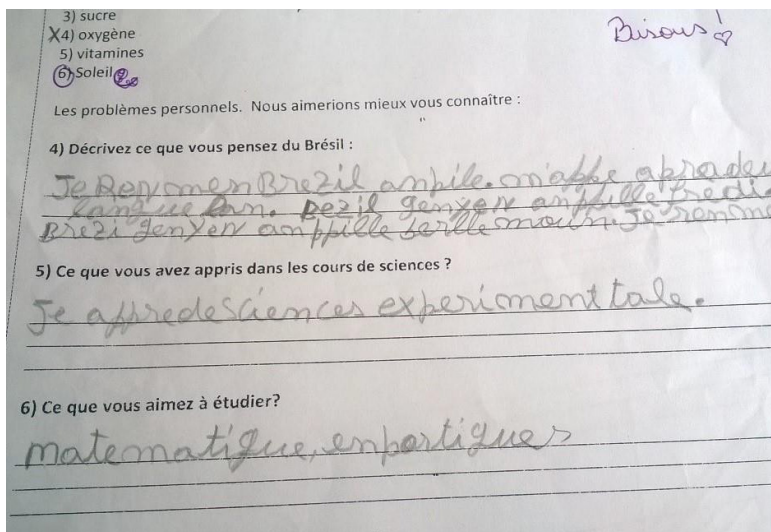 3) sucre
X4) oxygène
5) vitamines
6) Soleil
Bisous!
Les problèmes personnels. Nous aimerions mieux vous connaître :
4) Décrivez ce que vous pensez du Brésil :
Je Brezil anpile.
langue Bezil genyen
Brezi genyen moun. Je
5) Ce que vous avez appris dans les cours de sciences ?
Je apprede Sciences experimenttale.
6) Ce que vous aimez à étudier?
matematique, enportigues